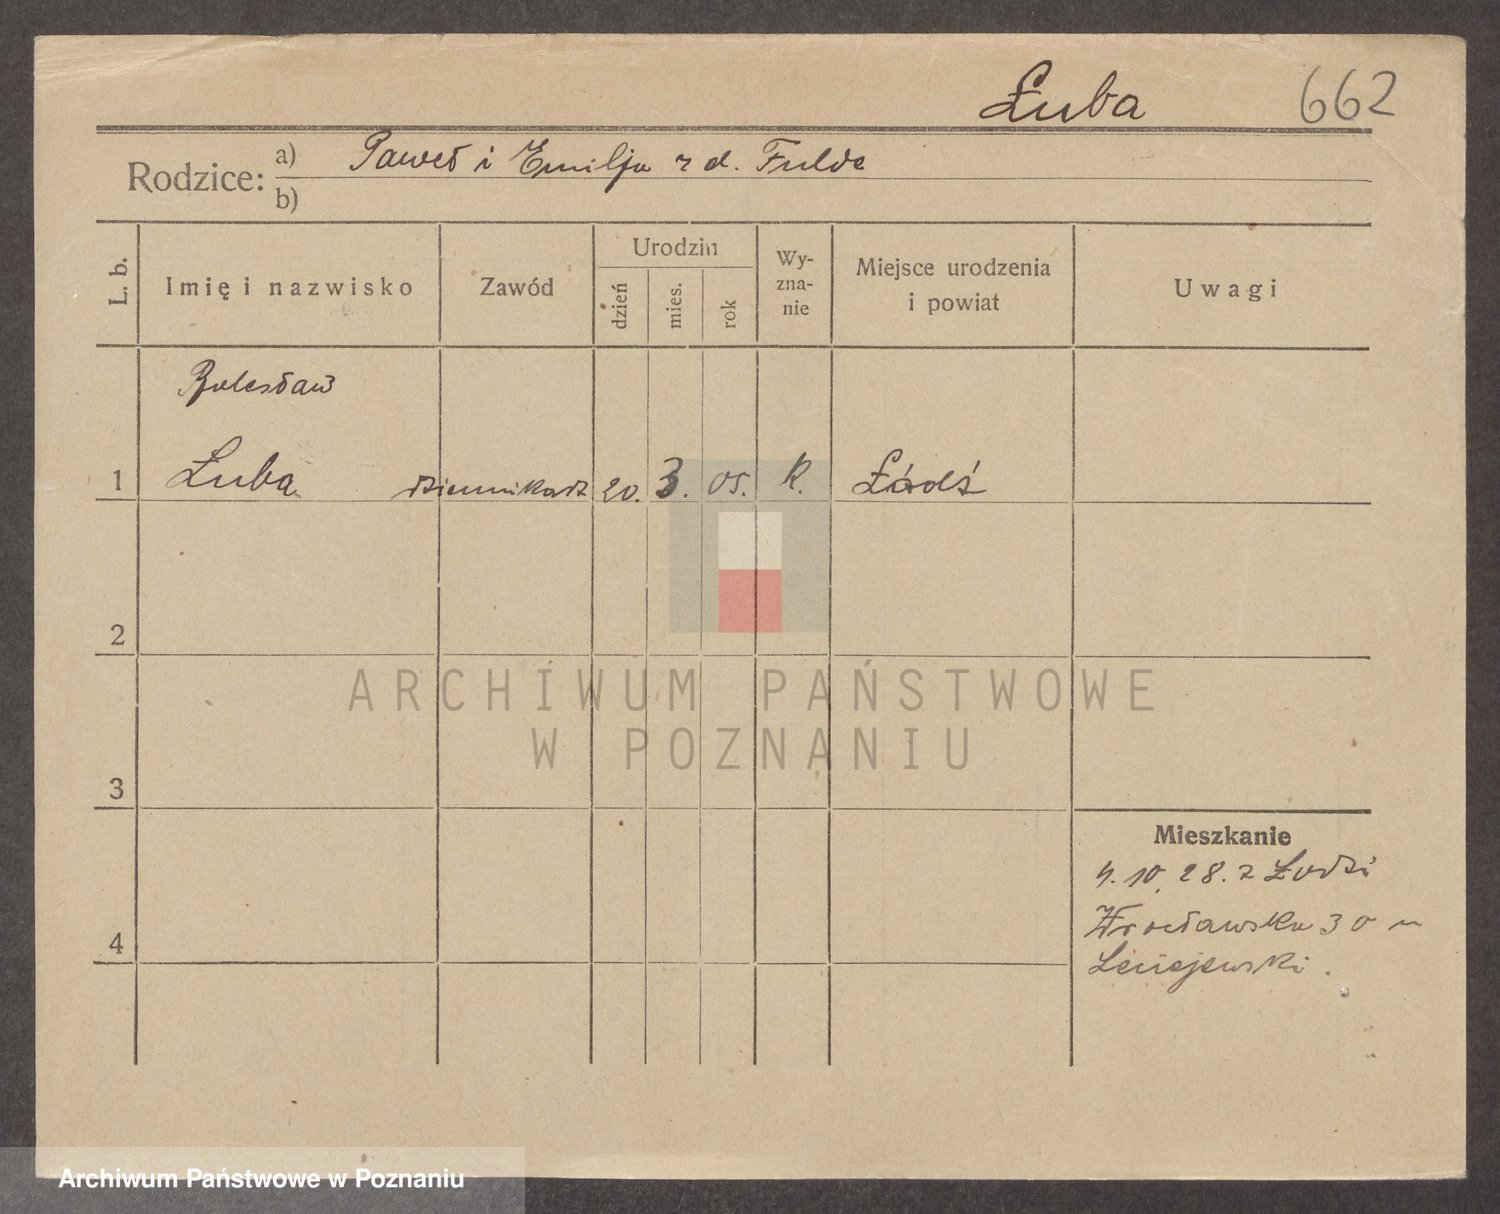 Łuba 662
Rodzice: a) Paweł i Emilja z d. Fulde
b)
L. b.
Imię i nazwisko
Zawód
Urodzin
dzień
mies.
rok
Wy-
zna-
nie
Miejsce urodzenia
i powiat
Uwagi
Bolesław
1 Łuba dziennikarz 20. 3. 05. K. Łódź
2
ARCHIWUM PAŃSTWOWE
W POZNANIU
3
Mieszkanie
4. 10. 28. z Łodzi
Wrocławska 30 u
4
Archiwum Państwowe w Poznaniu